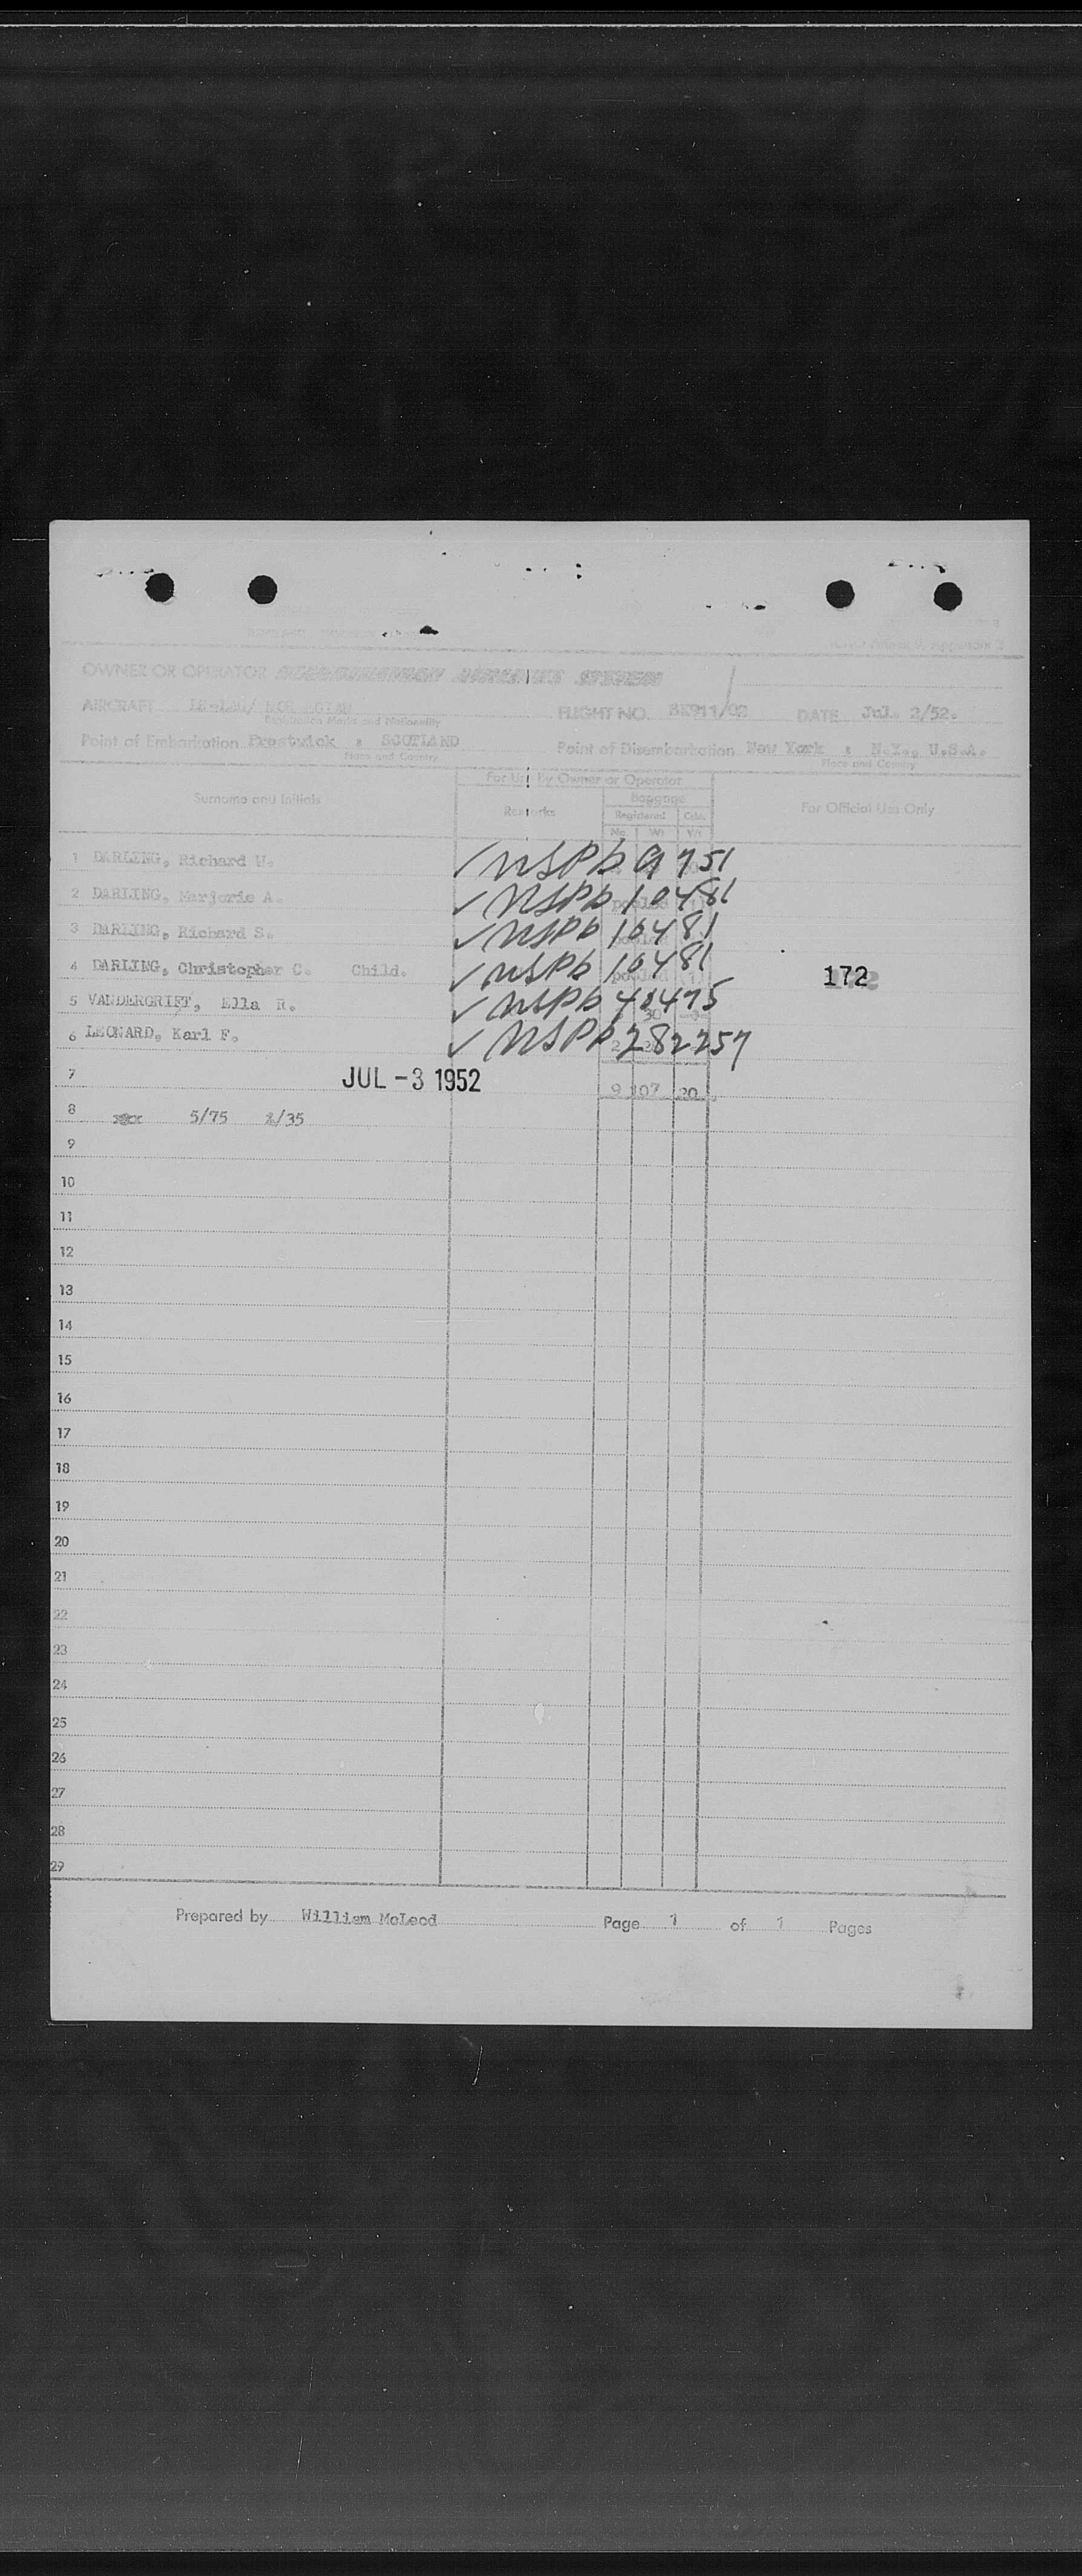 OWNER OR OPERATOR SCANDINAVIAN AIRLINES SYSTEM
AIRCRAFT NORWEGIAN FLIGHT NO. SK911/02 DATE Jul. 2/52.
Registration Marks and Nationality
Point of Embarkation Prestwick : SCOTLAND Point of Disembarkation New York : N.Y., U.S.A.
Place and Country Place and Country
For Use by Owner or Operator
Surname and Initials Remarks Baggage For Official Use Only
Registered Cabin
No. Wt Wt
1 DARLING, Richard W. ✓ USPP 9751
2 DARLING, Marjorie A. ✓ USPP 10481 pooled
3 DARLING, Richard S. ✓ USPP 10481 pooled
4 DARLING, Christopher C. Child. ✓ USPP 10481 pooled 172
5 VANDERGRIFT, Ella R. ✓ USPP 40475 30
6 LEONARD, Karl F. ✓ USPP 282257 2
7 JUL -3 1952 9 107 20
8 5/75 1/35
9
10
11
12
13
14
15
16
17
18
19
20
21
22
23
24
25
26
27
28
29
Prepared by William McLeod Page 1 of 1 Pages